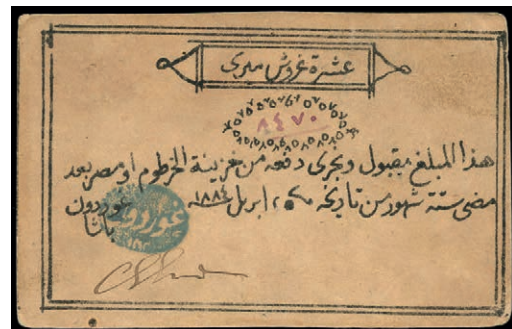 عشرة غروش ميرى
٨٤٧٠
هذا المبلغ مقبول ويجرى دفعه من خزينة الخرطوم او مصر بعد
مضى ستة شهور من تاريخه ٢٥ ابريل ١٨٨٤ غوردون
باشا
غوردون